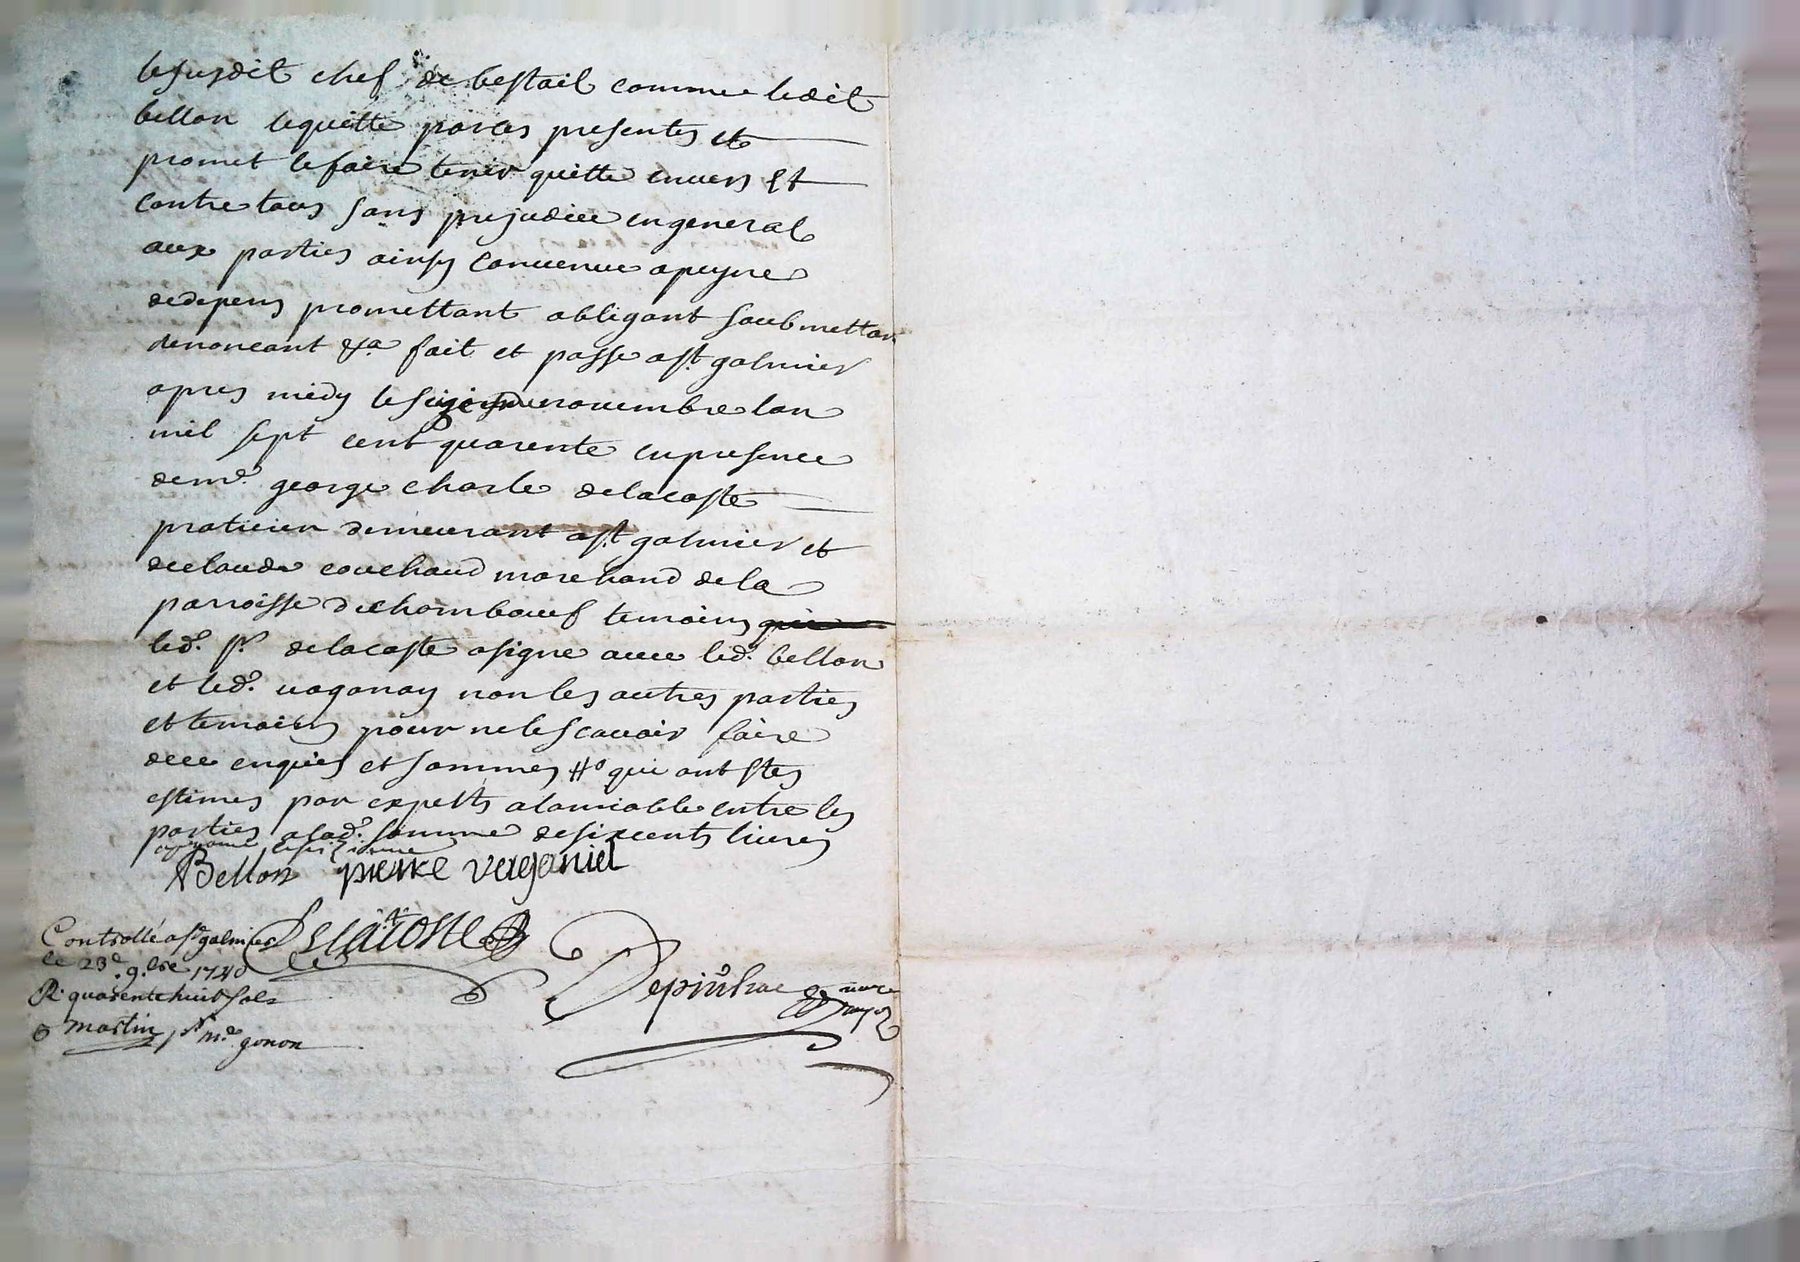 le susdit chef de bestail comme ledit
bellon lequitte par ces presentes et
promet le faire tenir quitte envers et
contre tous sans prejudice en general
aux parties ainsy convenue a peyne
de depens promettant obligant soubmettan
renoncant &a fait et passé a st galmier
apres midy le novembre lan
mil sept cent quarente en presence
de me. george charle delacoste
praticien demeurant a st galmier et
de claude couchaud marchand de la
parroisse de chambœuf temoins
led. sr. delacoste a signé avec led. bellon
et led. vaganay non les autres parties
et temoins pour ne le scavoir faire
de ce enquis et sommes # qui ont stes
estimes par experts a lamiable entre les
parties a lad. somme de six cents livres
Bellon pierre veganiel
Delacoste
Controllé a st galmier
le 23e. 9.bre 1740
R. quarente huit sols
martin pr me. gonon